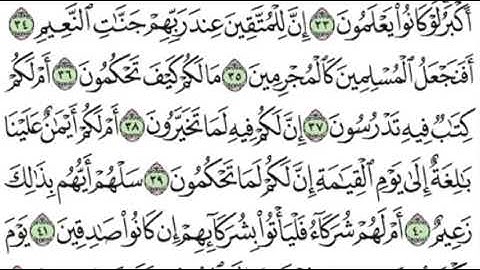 أَكْبَرُ لَوْ كَانُوا۟ يَعْلَمُونَ ٣٣ إِنَّ لِلْمُتَّقِينَ عِندَ رَبِّهِمْ جَنَّـٰتِ ٱلنَّعِيمِ ٣٤
أَفَنَجْعَلُ ٱلْمُسْلِمِينَ كَٱلْمُجْرِمِينَ ٣٥ مَا لَكُمْ كَيْفَ تَحْكُمُونَ ٣٦ أَمْ لَكُمْ
كِتَـٰبٌ فِيهِ تَدْرُسُونَ ٣٧ إِنَّ لَكُمْ فِيهِ لَمَا تَخَيَّرُونَ ٣٨ أَمْ لَكُمْ أَيْمَـٰنٌ عَلَيْنَا
بَـٰلِغَةٌ إِلَىٰ يَوْمِ ٱلْقِيَـٰمَةِ إِنَّ لَكُمْ لَمَا تَحْكُمُونَ ٣٩ سَلْهُمْ أَيُّهُم بِذَٰلِكَ
زَعِيمٌ ٤٠ أَمْ لَهُمْ شُرَكَآءُ فَلْيَأْتُوا۟ بِشُرَكَآئِهِمْ إِن كَانُوا۟ صَـٰدِقِينَ ٤١ يَوْمَ